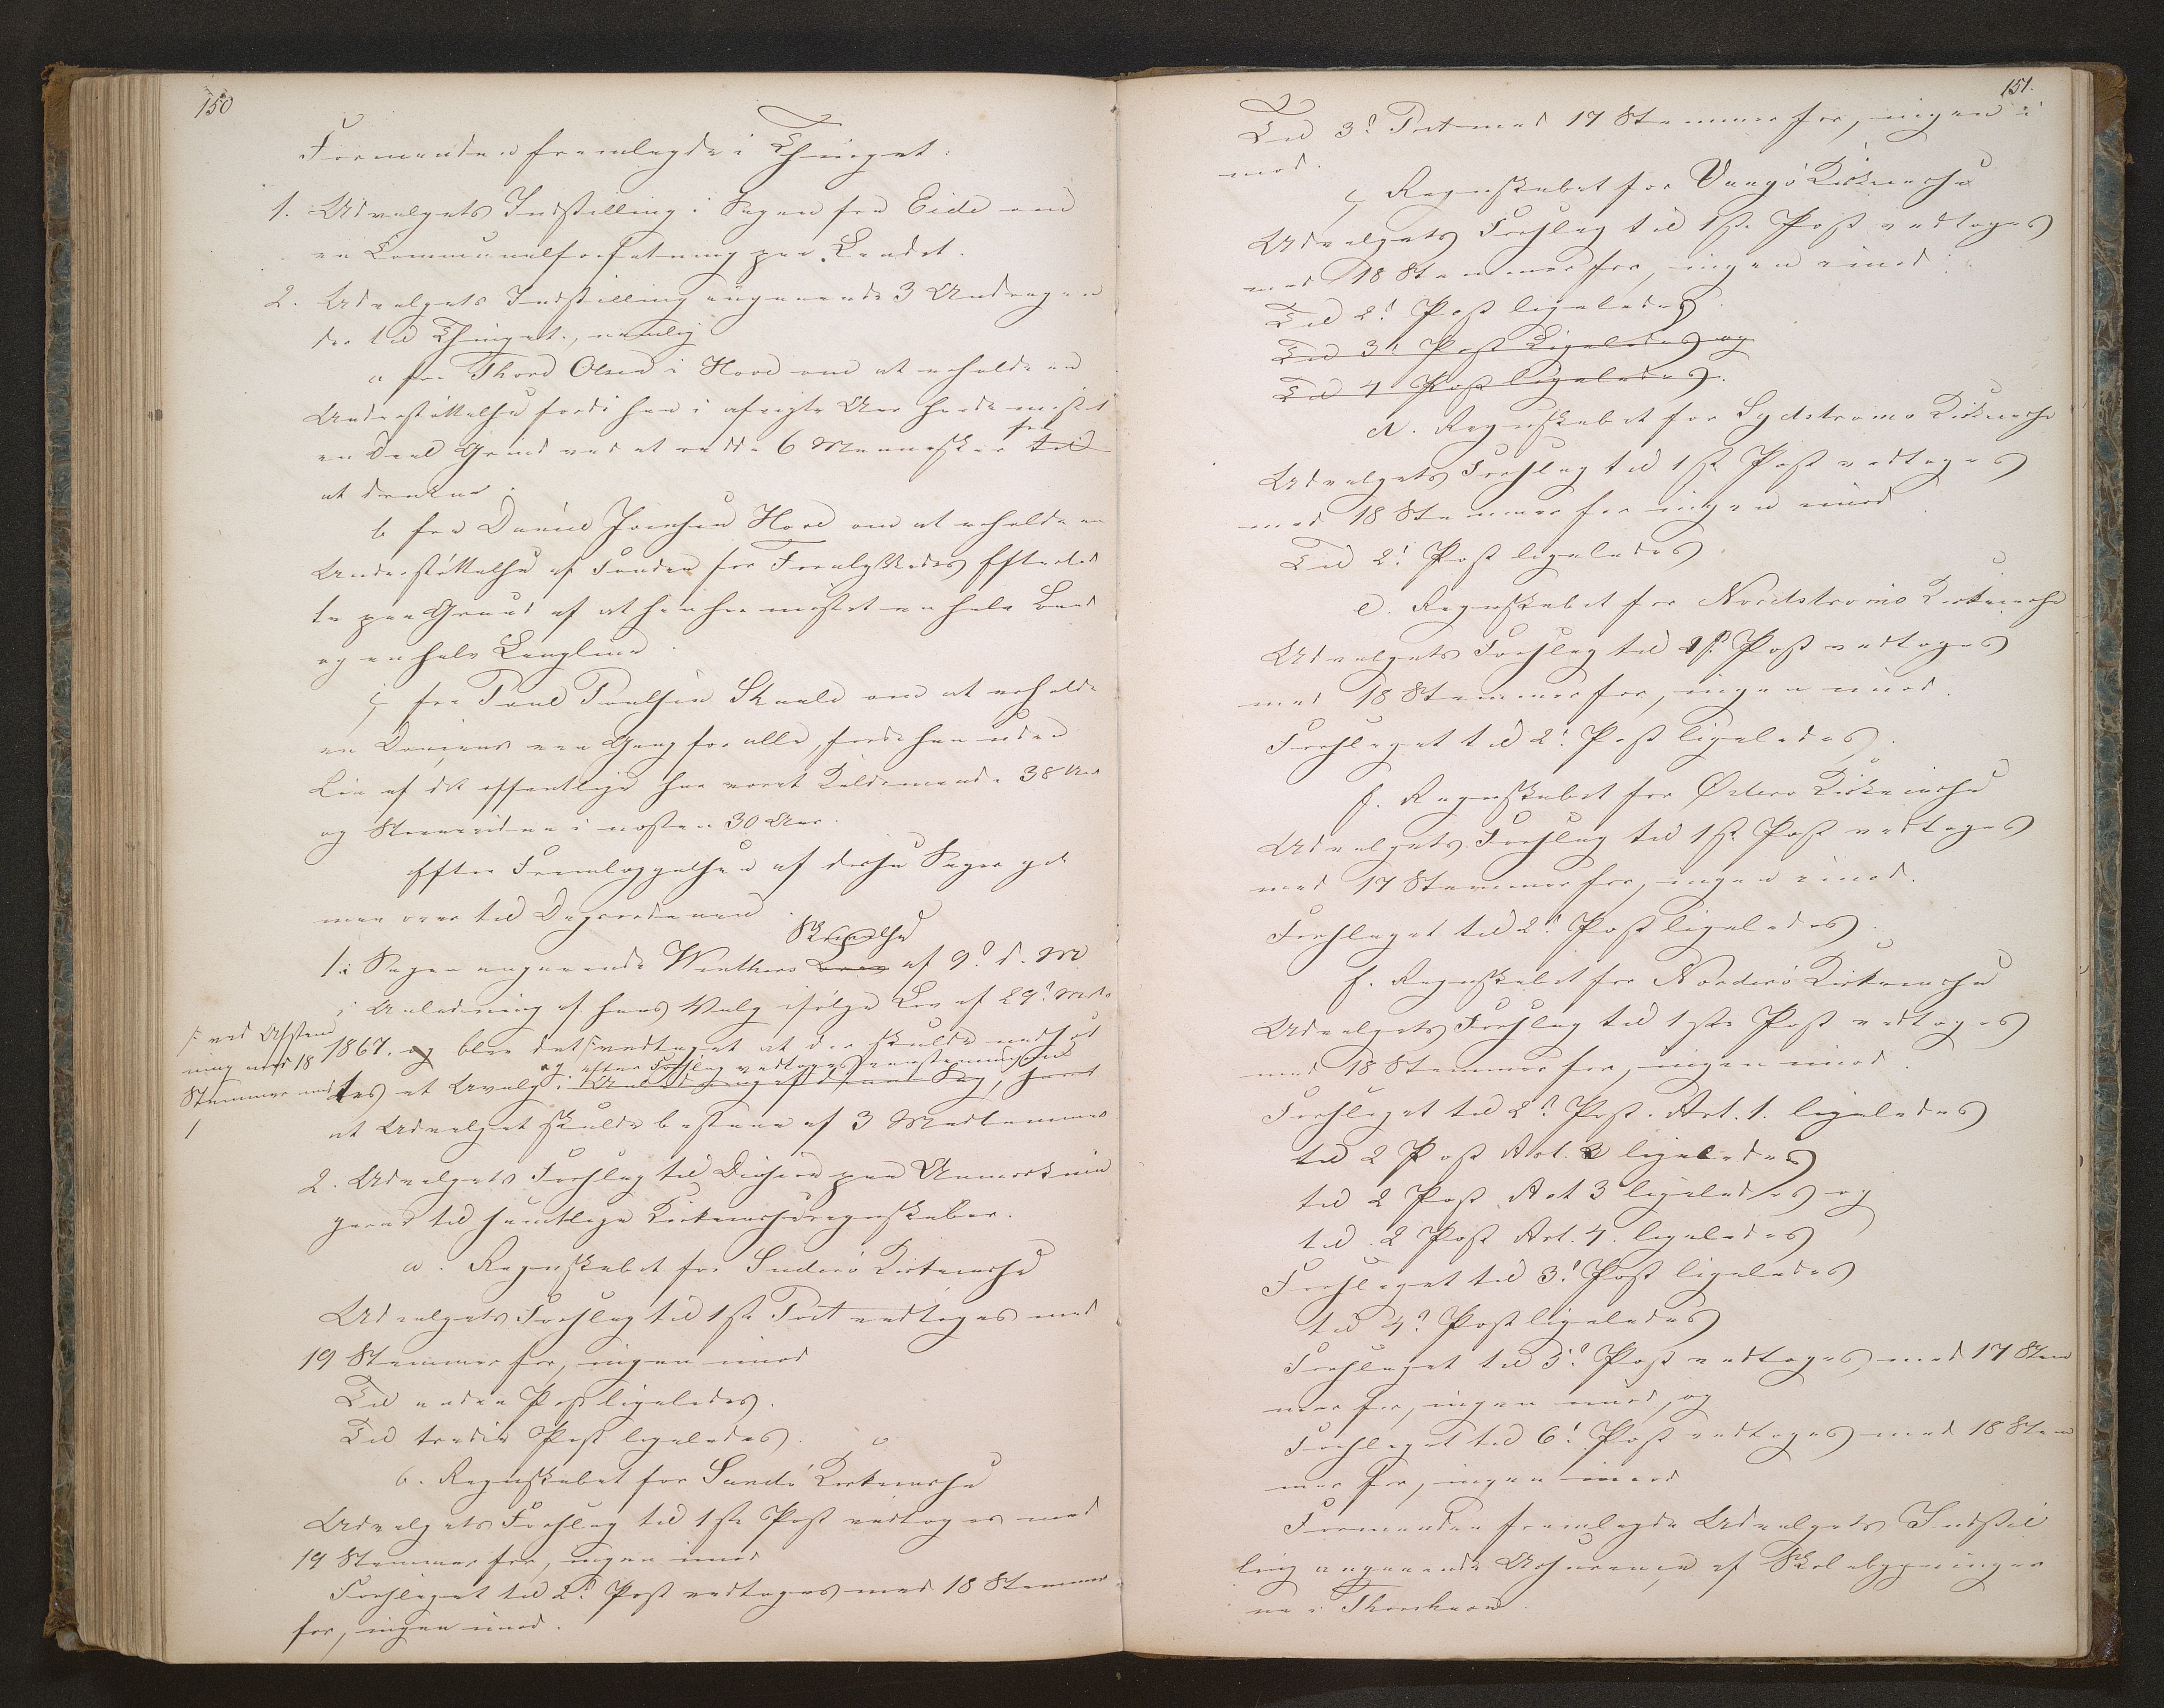 150
Formanden fremlagde i Thinget:
1. Udvalgets Indstilling i Sagen fra Eide om
en Communalforfatning paa Landet.
2. Udvalgets Indstilling angaaende 3 Andragen
der til Thinget, nemlig
a fra Thord Olsen i Hove om at erholde en
Understøttelse fordi han i afvigte Aar havde mistet
en Deel Grind ved at redde 6 Mennesker til fra
at drukne.
b fra Daniel Joensen Hove om at erholde en
Understøttelse af Fonden for Forulykkedes Efterlad
te paa Grund af at han har mistet en halv Baad
og en halv Langline.
c fra Poul Poulsen Skaale om at erholde
en Douceur een Gang for alle, fordi han uden
Løn af det offentlige har været Kaldsmand i 38 Aar
og Stævnevidne i næsten 30 Aar.
Efter Fremlæggelsen af disse Sager gik
man over til Dagsordenen.
1: Sagen angaaende Winthers Brev Skrivelse af 9d d. M
i Anledning af hans Valg ifølge Lov af 29d Mrts
1867. og blev det vedtaget at der skulde nedsæt
tes et Udvalg i og efter Forslag vedtoges eenstemmigen
at Udvalget skulde bestaae af 3 Medlemmer
ved Afstem
ning med 18
Stemmer mod
1
2. Udvalgets Forslag til Decision paa Anmærknin
gerne til samtlige Kirkenesregnskaber.
a. Regnskabet for Suderø
Udvalgets Forslag til 1ste Post vedtoges med
19 Stemmer for, ingen imod
Til anden Post ligeledes.
Til tredie Post ligeledes.
b. Regnskabet for Sandø
Udvalgets Forslag til 1ste Post vedtoges med
19 Stemmer for, ingen imod
Forslaget til 2d Post vedtoges med 18 Stemmer
for, ingen imod.
151.
Til 3d Post med 17 Stemmer for, ingen i
mod.
c Regnskabet for Vaagø
Udvalgets Forslag til 1ste Post vedtoges
med 18 Stemmer for, ingen imod.
Til 2d Post ligeledes
Til 3d Post Ligeledes og
Til 4 Post ligeledes.
d. Regnskabet for Sydstrømø
Udvalgets Forslag til 1ste Post vedtoges
med 18 Stemmer for ingen imod.
Til 2d Post ligeledes.
e. Regnskabet for Nordstrømø
Udvalgets Forslag til 1ste Post vedtoges
med 18 Stemmer for, ingen imod.
Forslaget til 2d Post ligeledes.
f. Regnskabet for Østerø
Udvalgets Forslag til 1ste Post vedtoges
med 17 Stemmer for, ingen imod.
Forslaget til 2d Post ligeledes.
f. Regnskabet for Norderø
Udvalgets Forslag til 1ste Post vedtoges
med 18 Stemmer for, ingen imod.
Forslaget til 2d Post. Art. 1. ligeledes
til 2 Post Art. 2 ligeledes
til 2 Post Art 3 ligeledes og
til 2 Post Art. 4. ligeledes
Forslaget til 3d Post ligeledes
til 4d Post ligeledes
Forslaget til 5d Post vedtoges med 17 Stem
mer for, ingen imod, og
Forslaget til 6d Post vedtoges med 18 Stem
mer for, ingen imod
Formanden fremlagde Udvalgets Indstil
ling angaaende Assurance af Skolebygninger
ne i Thorshavn.